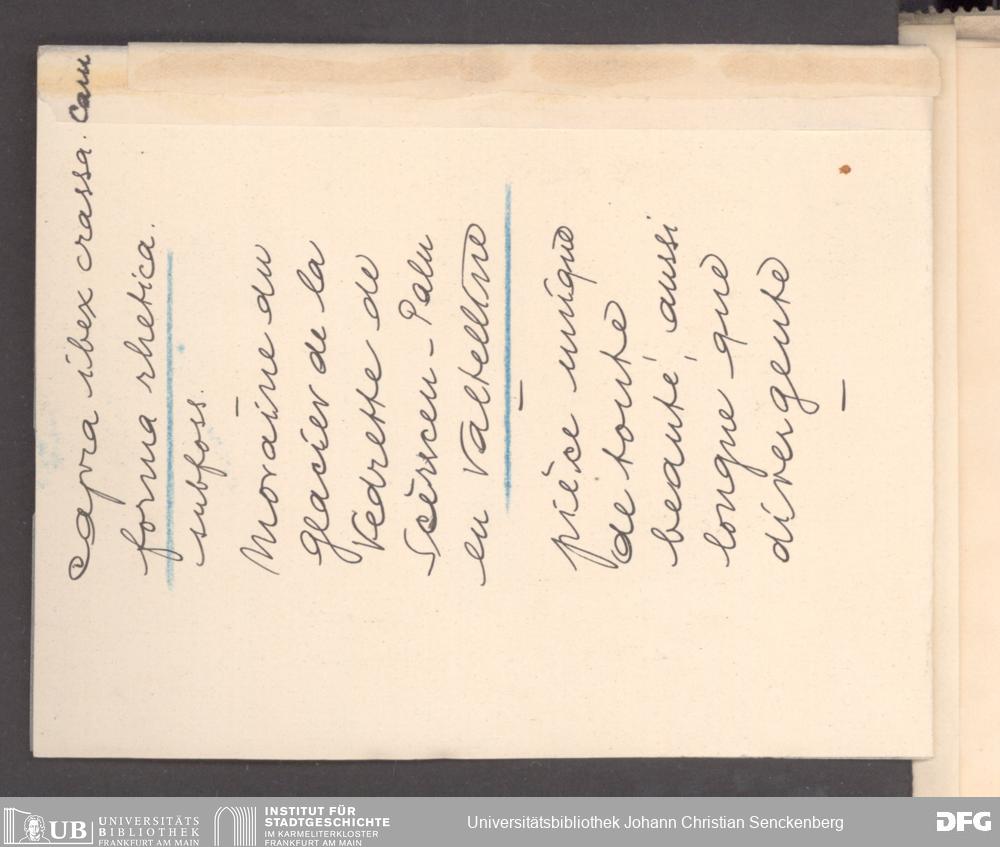 Capra ibex crassa. Cam
forma rhetica.
subfoss.
–
Moraine du
glacier de la
Vedrette de
Scèrscen-Palu
en Valtelline
–
pièce unique
de toute
beauté, aussi
longue que
divergente
–
UB UNIVERSITÄTS
BIBLIOTHEK
FRANKFURT AM MAIN
INSTITUT FÜR
STADTGESCHICHTE
IM KARMELITERKLOSTER
FRANKFURT AM MAIN
Universitätsbibliothek Johann Christian Senckenberg
DFG